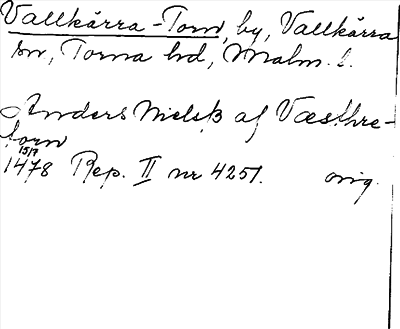 Vallkärra-Torn, by, Vallkärra
sn, Torna hd, Malm. l.
Anders Nielsß af Væsthre-
torn
15/7
1478 Rep. II nr 4251. orig.